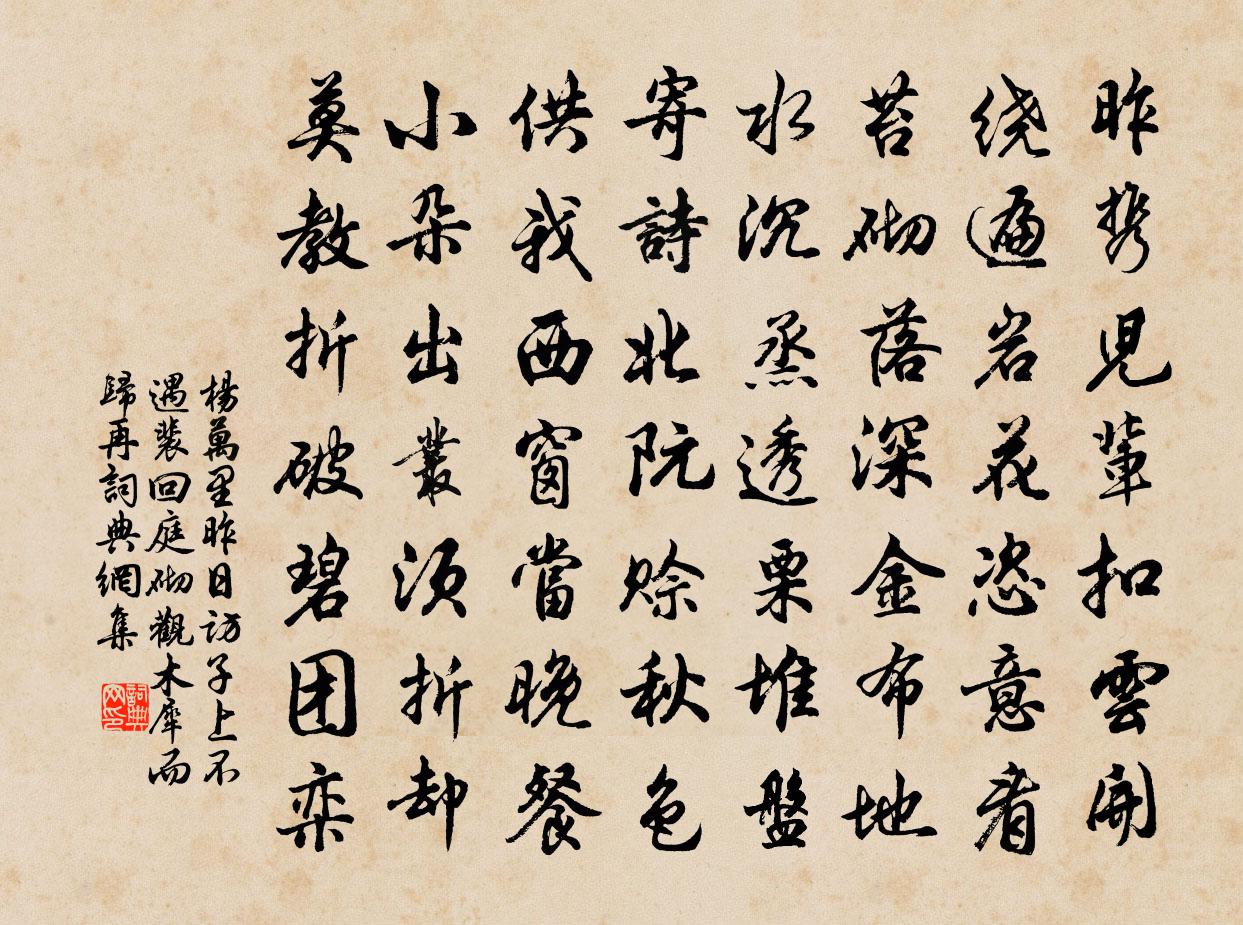 昨携児輩扣雲開
绕遍岩花恣意看
苔砌落深金布地
水沉蒸透栗堆盤
寄詩北阮賒秋色
供我西窗當晚餐
小朵出叢須折却
莫教折破碧团栾
楊萬里昨日訪子上不
遇裴回庭砌觀木犀而
歸再詞典網集
詞典
网印